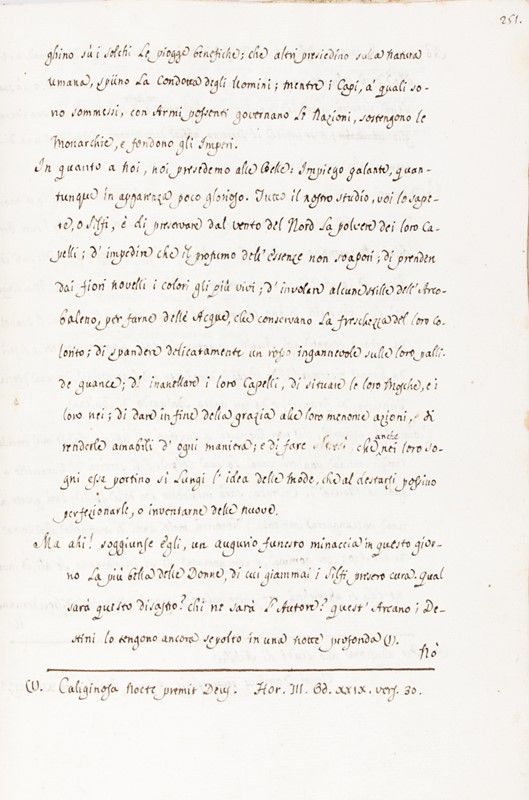 251.
ghino sù i solchi Le piogge benefiche; che altri presiedino sulla natura
umana, spiino La Condotta degli Uomini; mentre i Capi, a' quali so-
no sommessi, con Armi possenti governano Le Nazioni, sostengono le
Monarchie, e fondono gli Imperi.
In quanto a noi, noi presedemo alle Belle: Impiego galante, quan-
tunque in apparenza poco glorioso. Tutto il nostro studio, voi lo sape-
te, o Silfi, è di preservare dal vento del Nord La polvere dei loro Ca-
pelli; d' impedire che il profumo dell' essenze non svapori; di prender
dai fiori novelli i colori gli più vivi; d' involare alcune stille dell' Arco-
baleno per farne delle Acque, che conservano La freschezza del loro Co-
lorito; di spandere delicatamente un rosso ingannevole sulle loro palli-
de guance; d' inanellare i loro Capelli, di situare le loro Mosche, e i
loro nei; di dare in fine della grazia alle loro menome azioni, di
renderle amabili d' ogni maniera; e di fare che anche nei loro so-
gni esse portino sì Lungi l' idea delle Mode, che al destarsi possino
perfezionarle, o inventarne delle nuove.
Ma ahi! soggiunse Egli, un augurio funesto minaccia in questo gior-
no La più bella delle Donne, di cui giammai i Silfi presero cura. Qual
sarà questo disastro? chi ne sarà l' Autore? quest' Arcano i De-
stini lo tengono ancora sepolto in una notte profonda (1).
Nò
(1). Caliginosa nocte premit Deus. Hor. III. Od. XXIX. vers. 30.